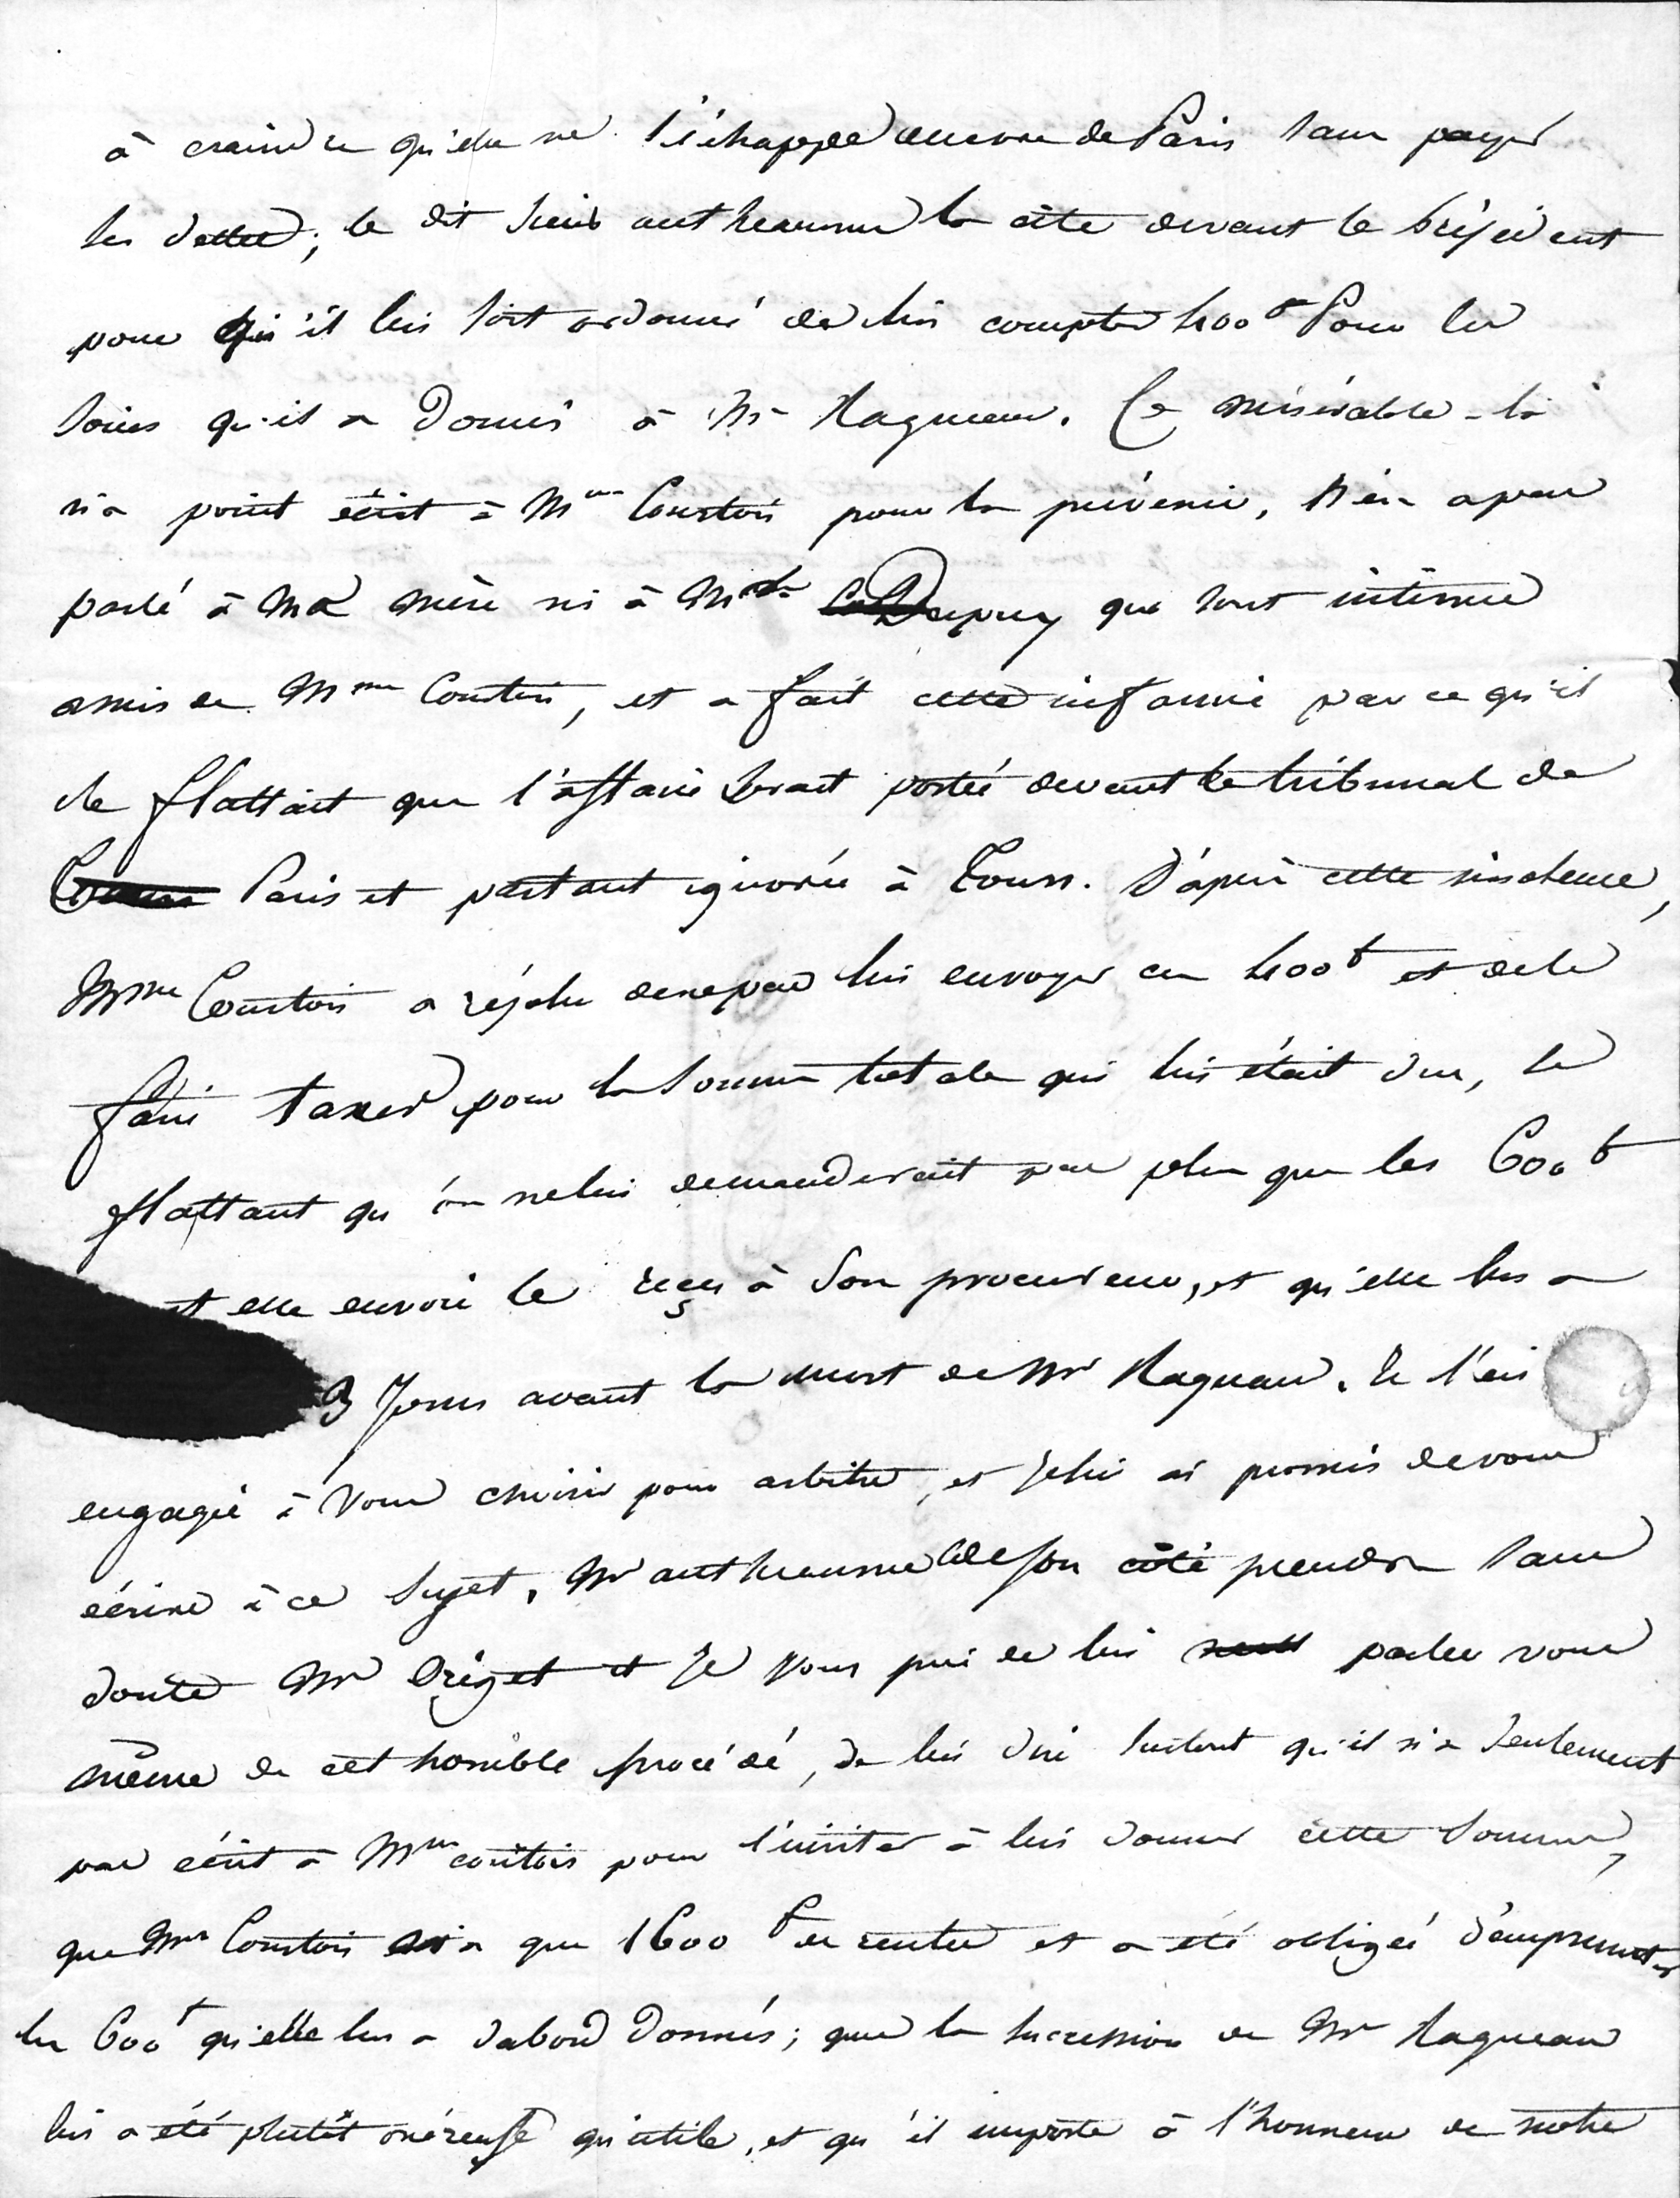 à craindre qu'elle ne s'échappe encore de Paris sans payer
ses dettes; le dit sieur antheaume la cite devant le président
pour qu'il lui soit ordonné de lui compter 400ᶠ Pour les
soins qu'il a donnés à Mr Raguneau. Ce misérable-là
n'a point écrit à Mme Courtois pour la prévenir, n'en a pas
parlé à ma mère ni à Mde Dupuy qui sont intimes
amis de Mme Courtois, et a fait cette infamie parce qu'il
se flattait que l'affaire serait portée devant le tribunal de
Paris et partant ignorée à Tours. D'après cette insolence,
Mme Courtois a résolu de ne pas lui envoyer ces 400ᶠ et de le
faire taxer pour la somme totale qui lui était due, se
flattant qu'on ne lui demanderait pas plus que les 600ᶠ
elle envoie le reçu à son procureur, et qu'elle lui a
3 Jours avant la mort de Mr Raguneau. Je l'ai
engagée à vous choisir pour arbitre, et je lui ai promis de vous
écrire à ce sujet. Mr antheaume de son côté prendra sans
doute Mr Origet et je vous prie de lui parler vous
même de cet horrible procédé, de lui dire surtout qu'il n'a seulement
pas écrit à Mme courtois pour l'inviter à lui donner cette somme,
que Mme Courtois n'a que 1600ᶠ de rentes et a été obligée d'emprunter
les 600ᶠ qu'elle lui a dabord donnés; que la succession de Mr Raguneau
lui a été plutôt onéreuse qu'utile, et qu'il importe à l'honneur de notre